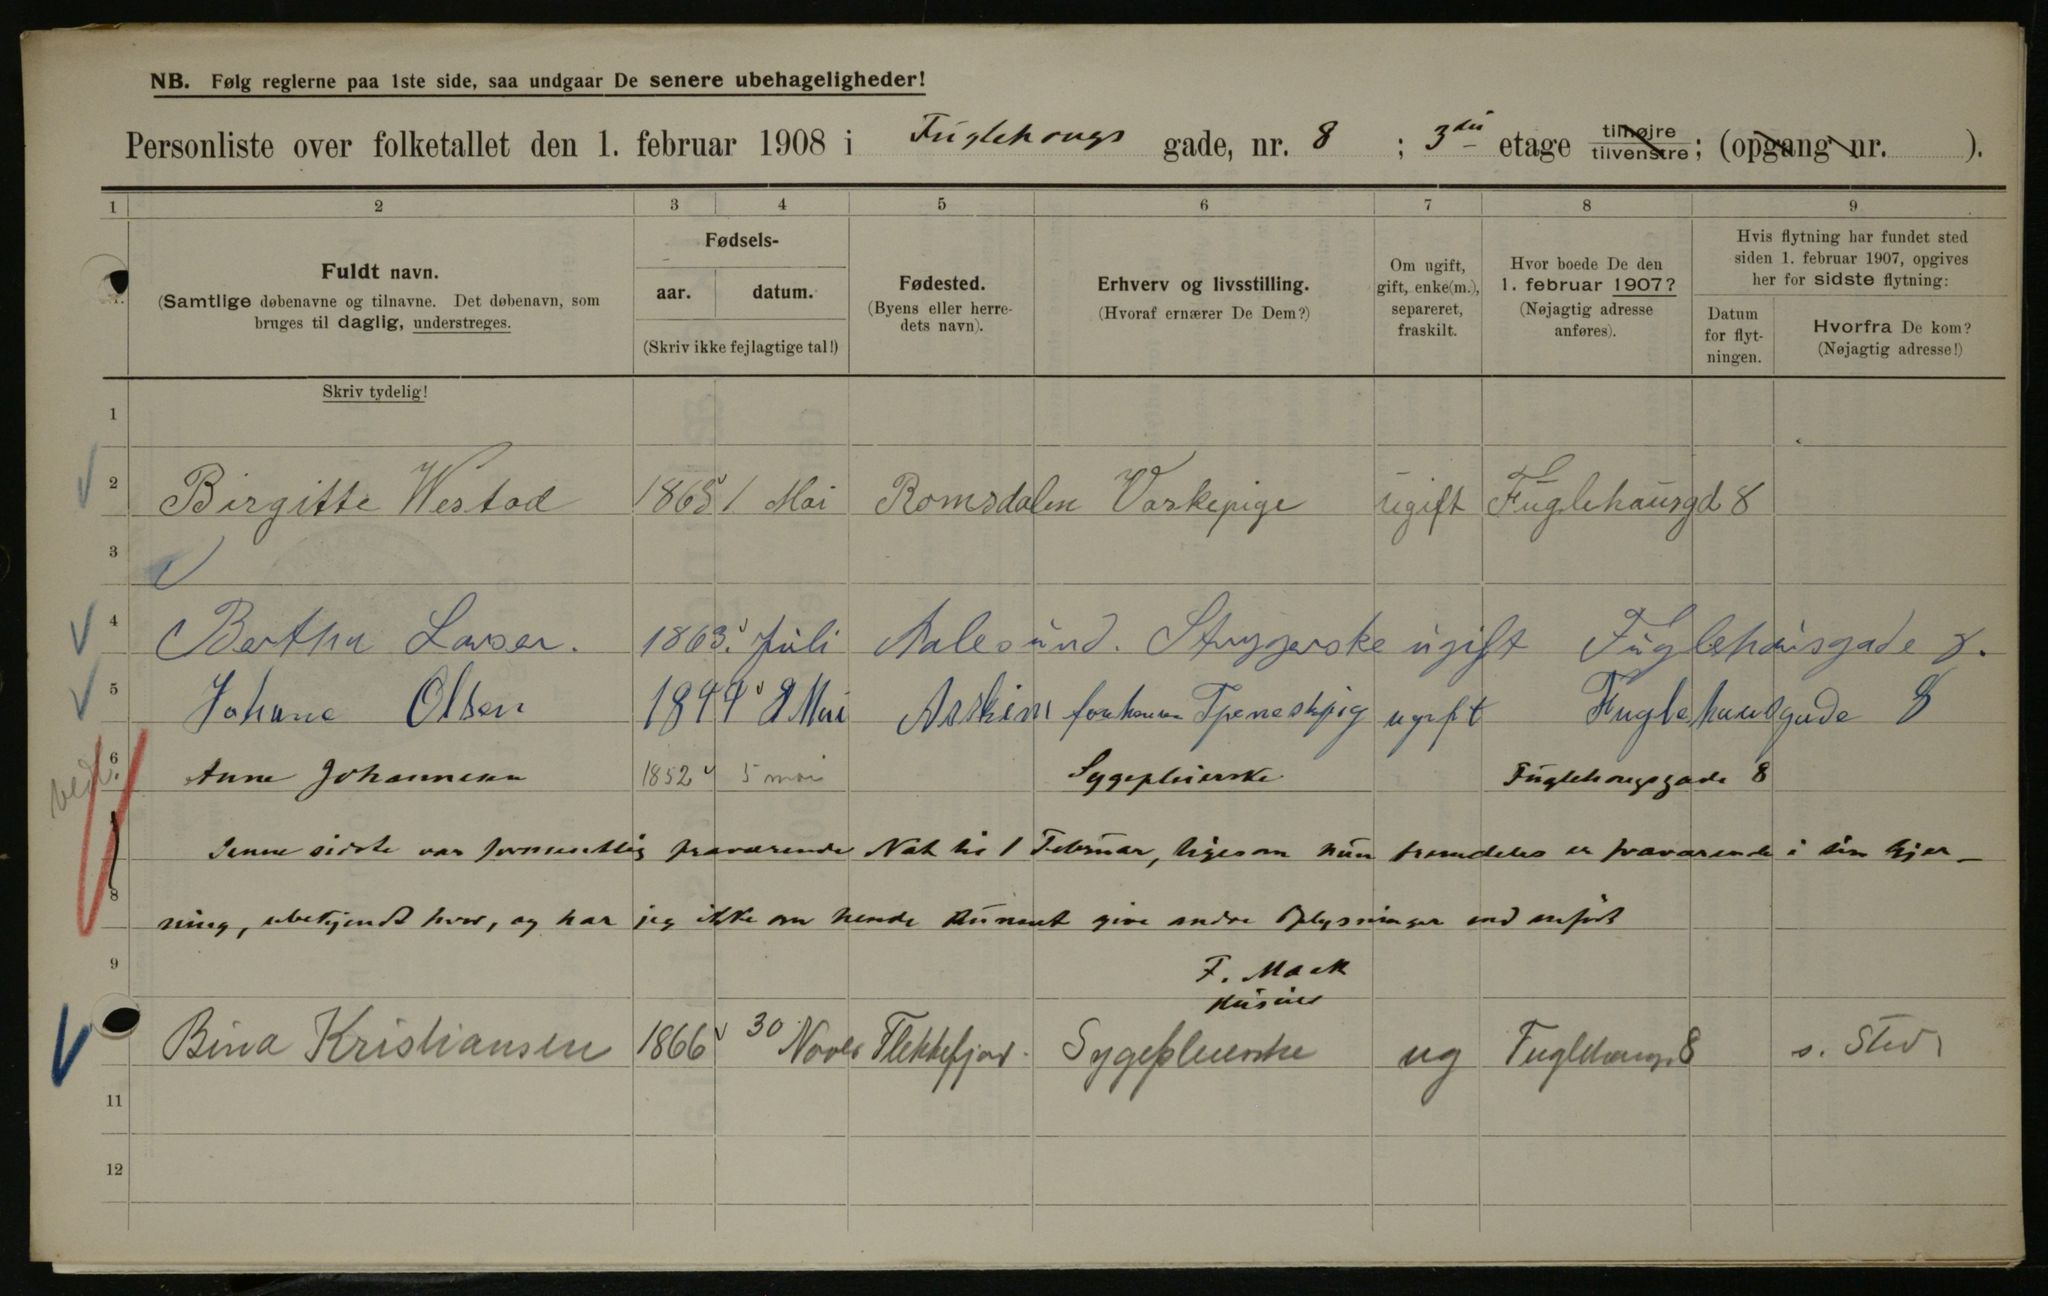 NB. Følg reglerne paa 1ste side, saa undgaar De senere ubehageligheder!
Personliste over folketallet den 1. februar 1908 i Fuglehougs gade, nr. 8 ; 3die etage tilhøjre tilvenstre ; (opgang nr. ).
1 2 3 4 5 6 7 8 9
Fuldt navn.
(Samtlige døbenavne og tilnavne. Det døbenavn, som
bruges til daglig, understreges.
Skriv tydelig!
Fødsels-
aar. datum.
(Skriv ikke fejlagtige tal!)
Fødested.
(Byens eller herre-
dets navn).
Erhverv og livsstilling.
(Hvoraf ernærer De Dem?)
Om ugift,
gift, enke(m.),
separeret,
fraskilt.
Hvor boede De den
1. februar 1907?
(Nøjagtig adresse
anføres).
Hvis flytning har fundet sted
siden 1. februar 1907, opgives
her for sidste flytning:
Datum
for flyt-
ningen.
Hvorfra De kom?
(Nøjagtig adresse!)
1
2 Birgitte Westad 1865 1 Mai Romsdalen Vaskepige ugift Fuglehausgd 8
3
4 Bertha Larsen. 1863. Juli Aalesund. Strygerske ugift Fuglehausgade 8.
5 Johane Olsen 1844 8 Mai Askim Tjenestepig ugift Fuglehausgade 8
6 Anne Johannesen 1852 5 mai Sygepleierske Fuglehougsgade 8
Denne sidste var formentlig fraværende Nat til 1 Februar, ligesom hun fremdeles er fraværende i sin Gjer-
8 ning, ubekjendt hvor, og har jeg ikke om hende kunnet give andre Oplysninger end anført
9 F. Mack
Huseier
Bina Kristiansen 1866 30 Novbr Flekkefjord. Sygepleierske ug Fuglehougs 8 s. Sted
11
12